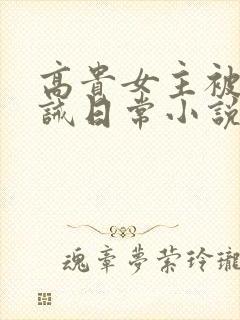 高貴女主被
誡日常小説
魂章夢縈玲瓏